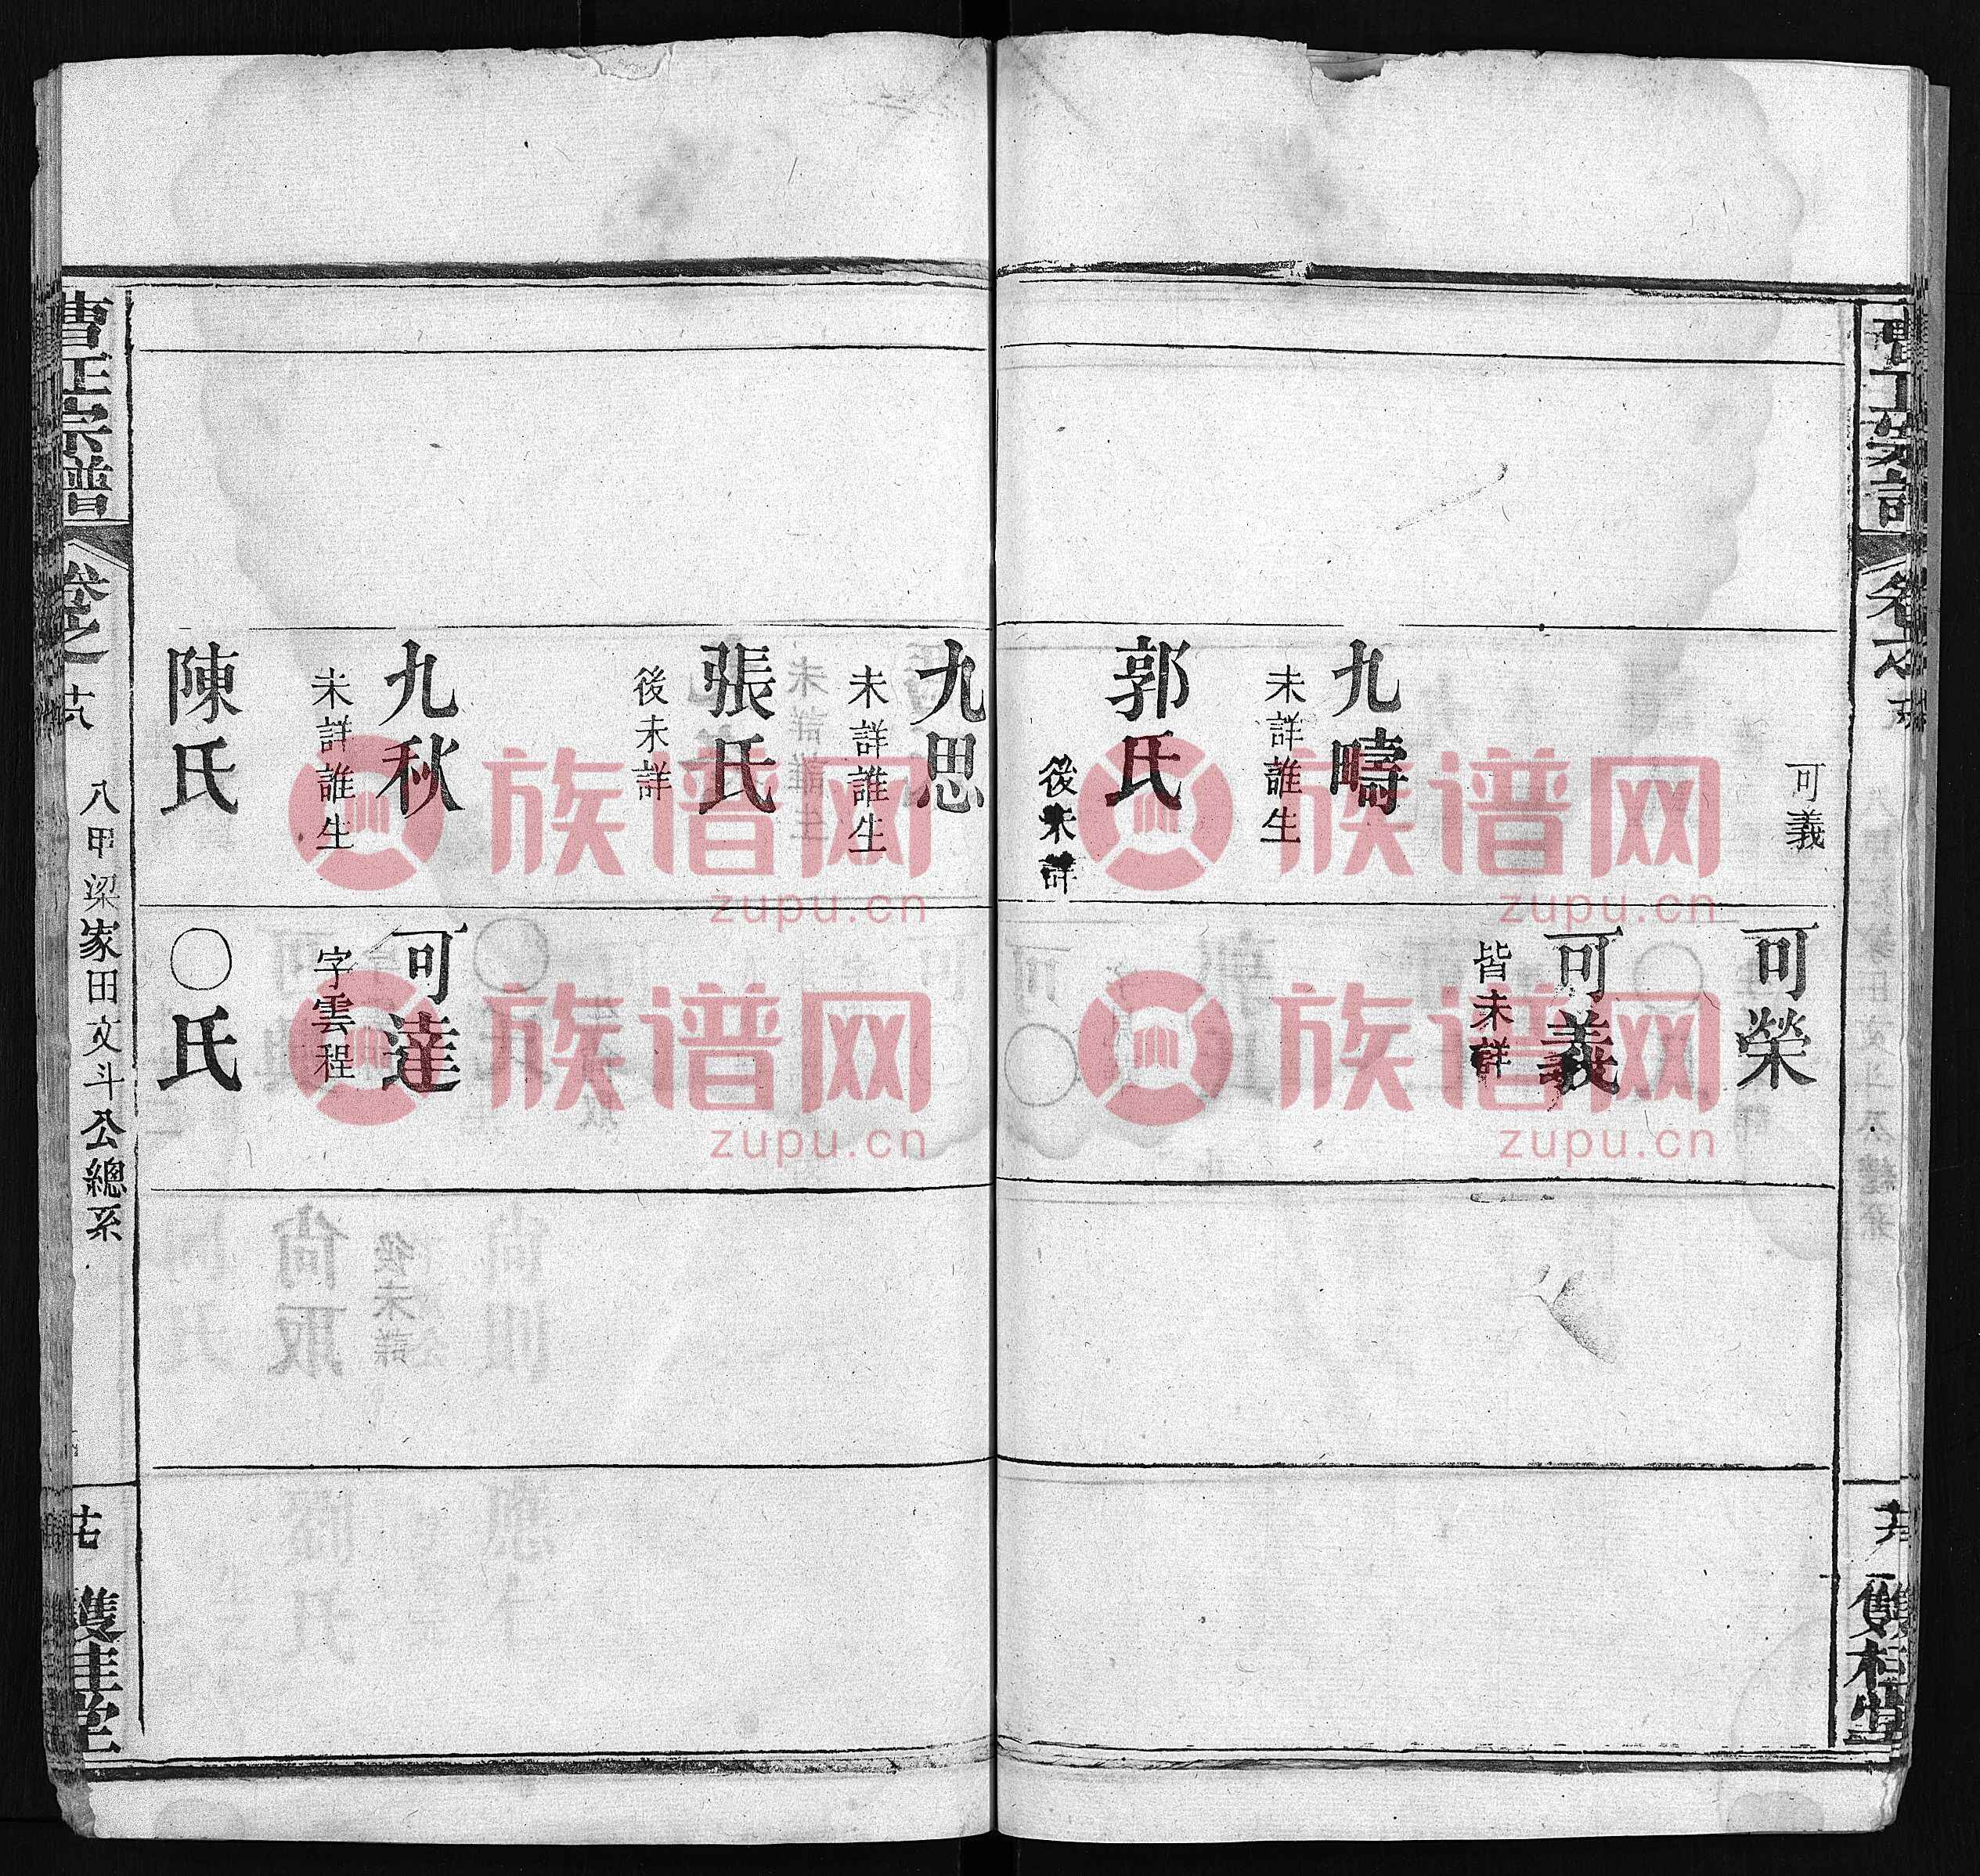 可義
九疇
未詳誰生
郭氏
後未詳
可榮
可義
皆未詳
雙桂堂
九思
未詳誰生
張氏
後未詳
九秋
未詳誰生
陳氏
可達
字雲程
〇氏
曹正宗譜
卷之
八甲梁家田文斗公總系
雙桂堂
族谱网
zupu.cn
族谱网
zupu.cn
族谱网
zupu.cn
族谱网
zupu.cn